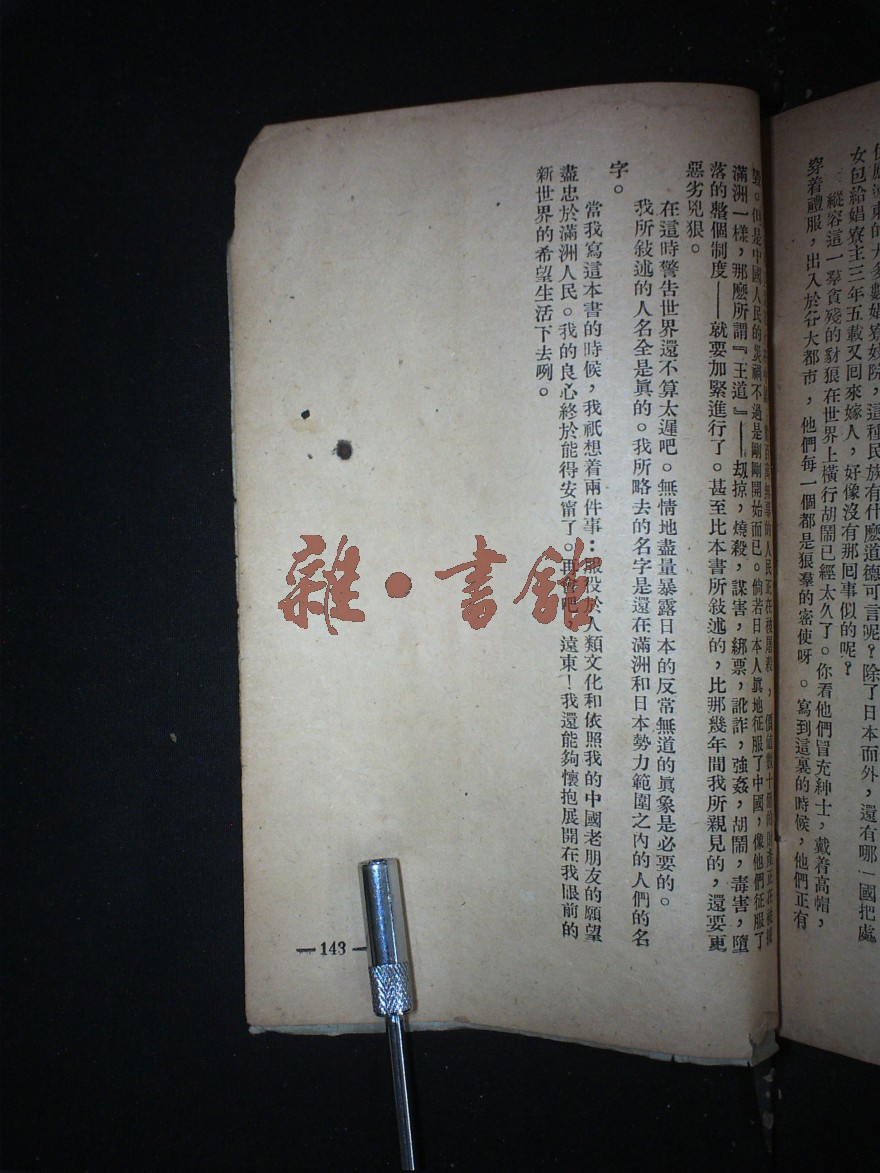 女包給娼寮主三年五載又囘來嫁人，好像沒有那囘事似的呢？
縱容這一羣貪殘的豺狼在世界上橫行胡鬧已經太久了。你看他們冒充紳士，戴着高帽，
穿着禮服，出入於各大都市，他們每一個都是狠羣的密使呀。寫到這裏的時候，他們正有
毀。但是中國人民的災禍不過是剛剛開始而已。倘若日本人眞地征服了中國，像他們征服了
滿洲一樣，那麽所謂『王道』——刼掠，燒殺，謀害，綁票，訛詐，強姦，胡鬧，毒害，墮
落的整個制度——就要加緊進行了。甚至比本書所敍述的，比那幾年間我所親見的，還要更
惡劣兇狠。
在這時警告世界還不算太遲吧。無情地盡量暴露日本的反常無道的眞象是必要的。
我所敍述的人名全是眞的。我所略去的名字是還在滿洲和日本勢力範圍之內的人們的名
字。
當我寫這本書的時候，我祇想着兩件事：服役於人類文化和依照我的中國老朋友的願望
盡忠於滿洲人民。我的良心終於能得安甯了。再會吧，遠東！我還能夠懷抱展開在我眼前的
新世界的希望生活下去咧。
—143—
雜·書館